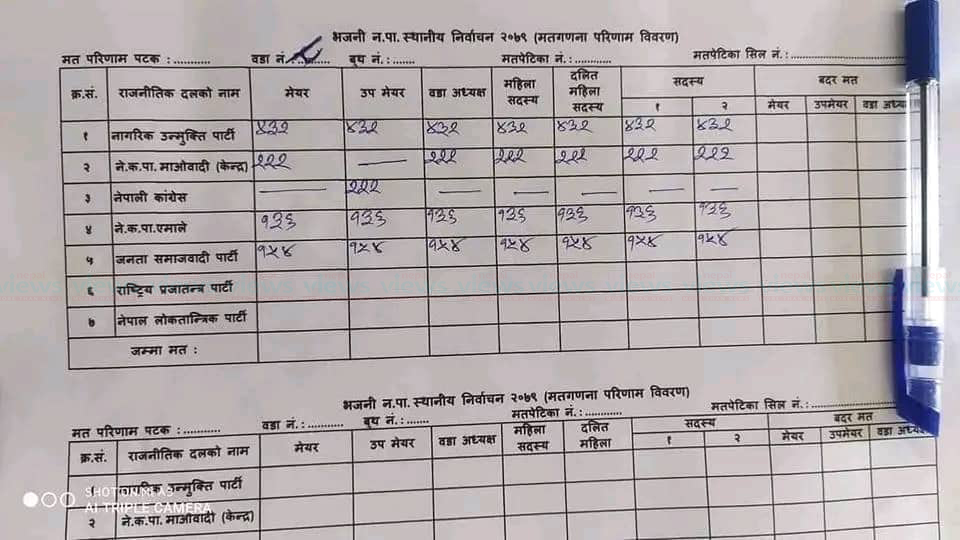 भजनी न.पा. स्थानीय निर्वाचन २०७९ (मतगणना परिणाम विवरण)
मत परिणाम पटक : ........... वडा नं. ८ बुथ नं.: ....... मतपेटिका नं.: ........... मतपेटिका सिल नं.: ...........
क्र.सं. राजनीतिक दलको नाम मेयर उप मेयर वडा अध्यक्ष महिला सदस्य दलित महिला सदस्य सदस्य १ २ बदर मत मेयर उपमेयर वडा
१ नागरिक उन्मुक्ति पार्टी ४३२ ४३२ ४३२ ४३२ ४३२ ४३२ ४३२
२ ने.क.पा. माओवादी (केन्द्र) २२२ — २२२ २२२ २२२ २२२ २२२
३ नेपाली कांग्रेस — २२२ — — — — —
४ ने.क.पा.एमाले १३६ १३६ १३६ १३६ १३६ १३६ १३६
५ जनता समाजवादी पार्टी १५४ १५४ १५४ १५४ १५४ १५४ १५४
६ राष्ट्रिय प्रजातन्त्र पार्टी
७ नेपाल लोकतान्त्रिक पार्टी
जम्मा मत :
भजनी न.पा. स्थानीय निर्वाचन २०७९ (मतगणना परिणाम विवरण)
मत परिणाम पटक : ........... वडा नं.: ........... बुथ नं.: ....... मतपेटिका नं.: ........... मतपेटिका सिल नं.: ...........
क्र.सं. राजनीतिक दलको नाम मेयर उप मेयर वडा अध्यक्ष महिला सदस्य दलित महिला सदस्य १ २ बदर मत मेयर उपमेयर वडा अध्यक्ष
नागरिक उन्मुक्ति पार्टी
२ ने.क.पा. माओवादी (केन्द्र)
SHOT ON MI A3
AI TRIPLE CAMERA